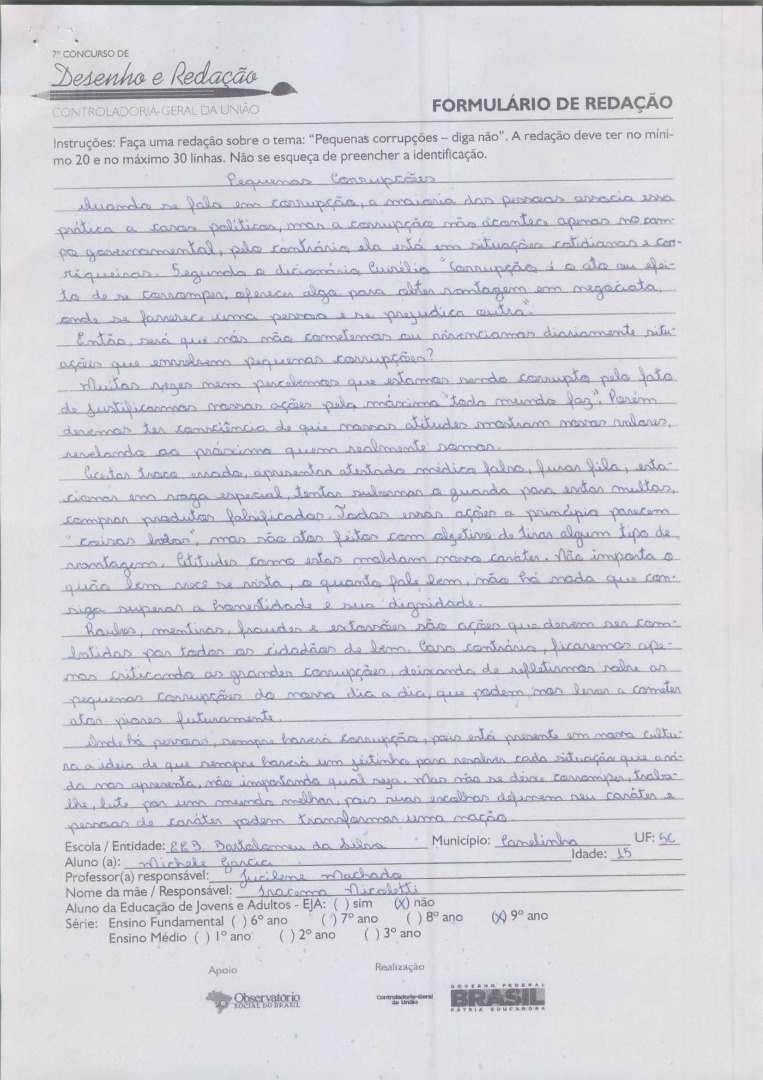 7º CONCURSO DE
Desenho e Redação
CONTROLADORIA-GERAL DA UNIÃO
FORMULÁRIO DE REDAÇÃO
Instruções: Faça uma redação sobre o tema: “Pequenas corrupções – diga não”. A redação deve ter no míni-
mo 20 e no máximo 30 linhas. Não se esqueça de preencher a identificação.
Pequenas Corrupções
Quando se fala em corrupção, a maioria das pessoas associa essa
prática a casos políticos, mas a corrupção não acontece apenas no cam-
po governamental, pelo contrário ela está em situações cotidianas e cor-
riqueiras. Segundo o dicionário Aurélio "Corrupção é o ato ou efei-
to de se corromper, oferecer algo para obter vantagem em negociata,
onde se favorece uma pessoa e se prejudica outra".
Então, será que nós não cometemos ou vivenciamos diariamente situ-
ações que envolvem pequenas corrupções?
Muitas vezes nem percebemos que estamos sendo corrupto pelo fato
de justificarmos nossas ações pela máxima "todo mundo faz". Porém
devemos ter consciência de que nossas atitudes mostram nossos valores,
revelando ao próximo quem realmente somos.
Aceitar troco errado, apresentar atestado médico falso, furar fila, esta-
cionar em vaga especial, tentar subornar o guarda para evitar multas,
comprar produtos falsificados. Todas essas ações a princípio parecem
"coisas bobas", mas são atos feitos com objetivo de tirar algum tipo de
vantagem. Atitudes como estas moldam nosso caráter. Não importa o
quão bem você se vista, o quanto fale bem, não há nada que con-
siga superar a honestidade e sua dignidade.
Roubos, mentiras, fraudes e extorsões são ações que devem ser com-
batidas por todos os cidadãos de bem. Caso contrário, ficaremos ape-
nas criticando as grandes corrupções, deixando de refletirmos sobre as
pequenas corrupções do nosso dia a dia, que podem nos levar a cometer
atos piores futuramente.
Onde há pessoas, sempre haverá corrupção, pois está presente em nossa cultu-
ra a ideia de que sempre haverá um jeitinho para resolver cada situação que a vi-
da nos apresenta, não importando qual seja. Mas não se deixe corromper, traba-
lhe, lute por um mundo melhor, pois suas escolhas definem seu caráter e
pessoas de caráter podem transformar uma nação.
Escola / Entidade: EEB. Bartolomeu da Silva Município: Canelinha UF: SC
Aluno (a): Michele Garcia Idade: 15
Professor(a) responsável: Jucilene Machado
Nome da mãe / Responsável: Iracema Nicoletti
Aluno da Educação de Jovens e Adultos - EJA: ( ) sim (X) não
Série: Ensino Fundamental ( ) 6º ano ( ) 7º ano ( ) 8º ano (X) 9º ano
Ensino Médio ( ) 1º ano ( ) 2º ano ( ) 3º ano
Apoio
Realização
Observatório
SOCIAL DO BRASIL
Controladoria-Geral
da União
GOVERNO FEDERAL
BRASIL
PÁTRIA EDUCADORA